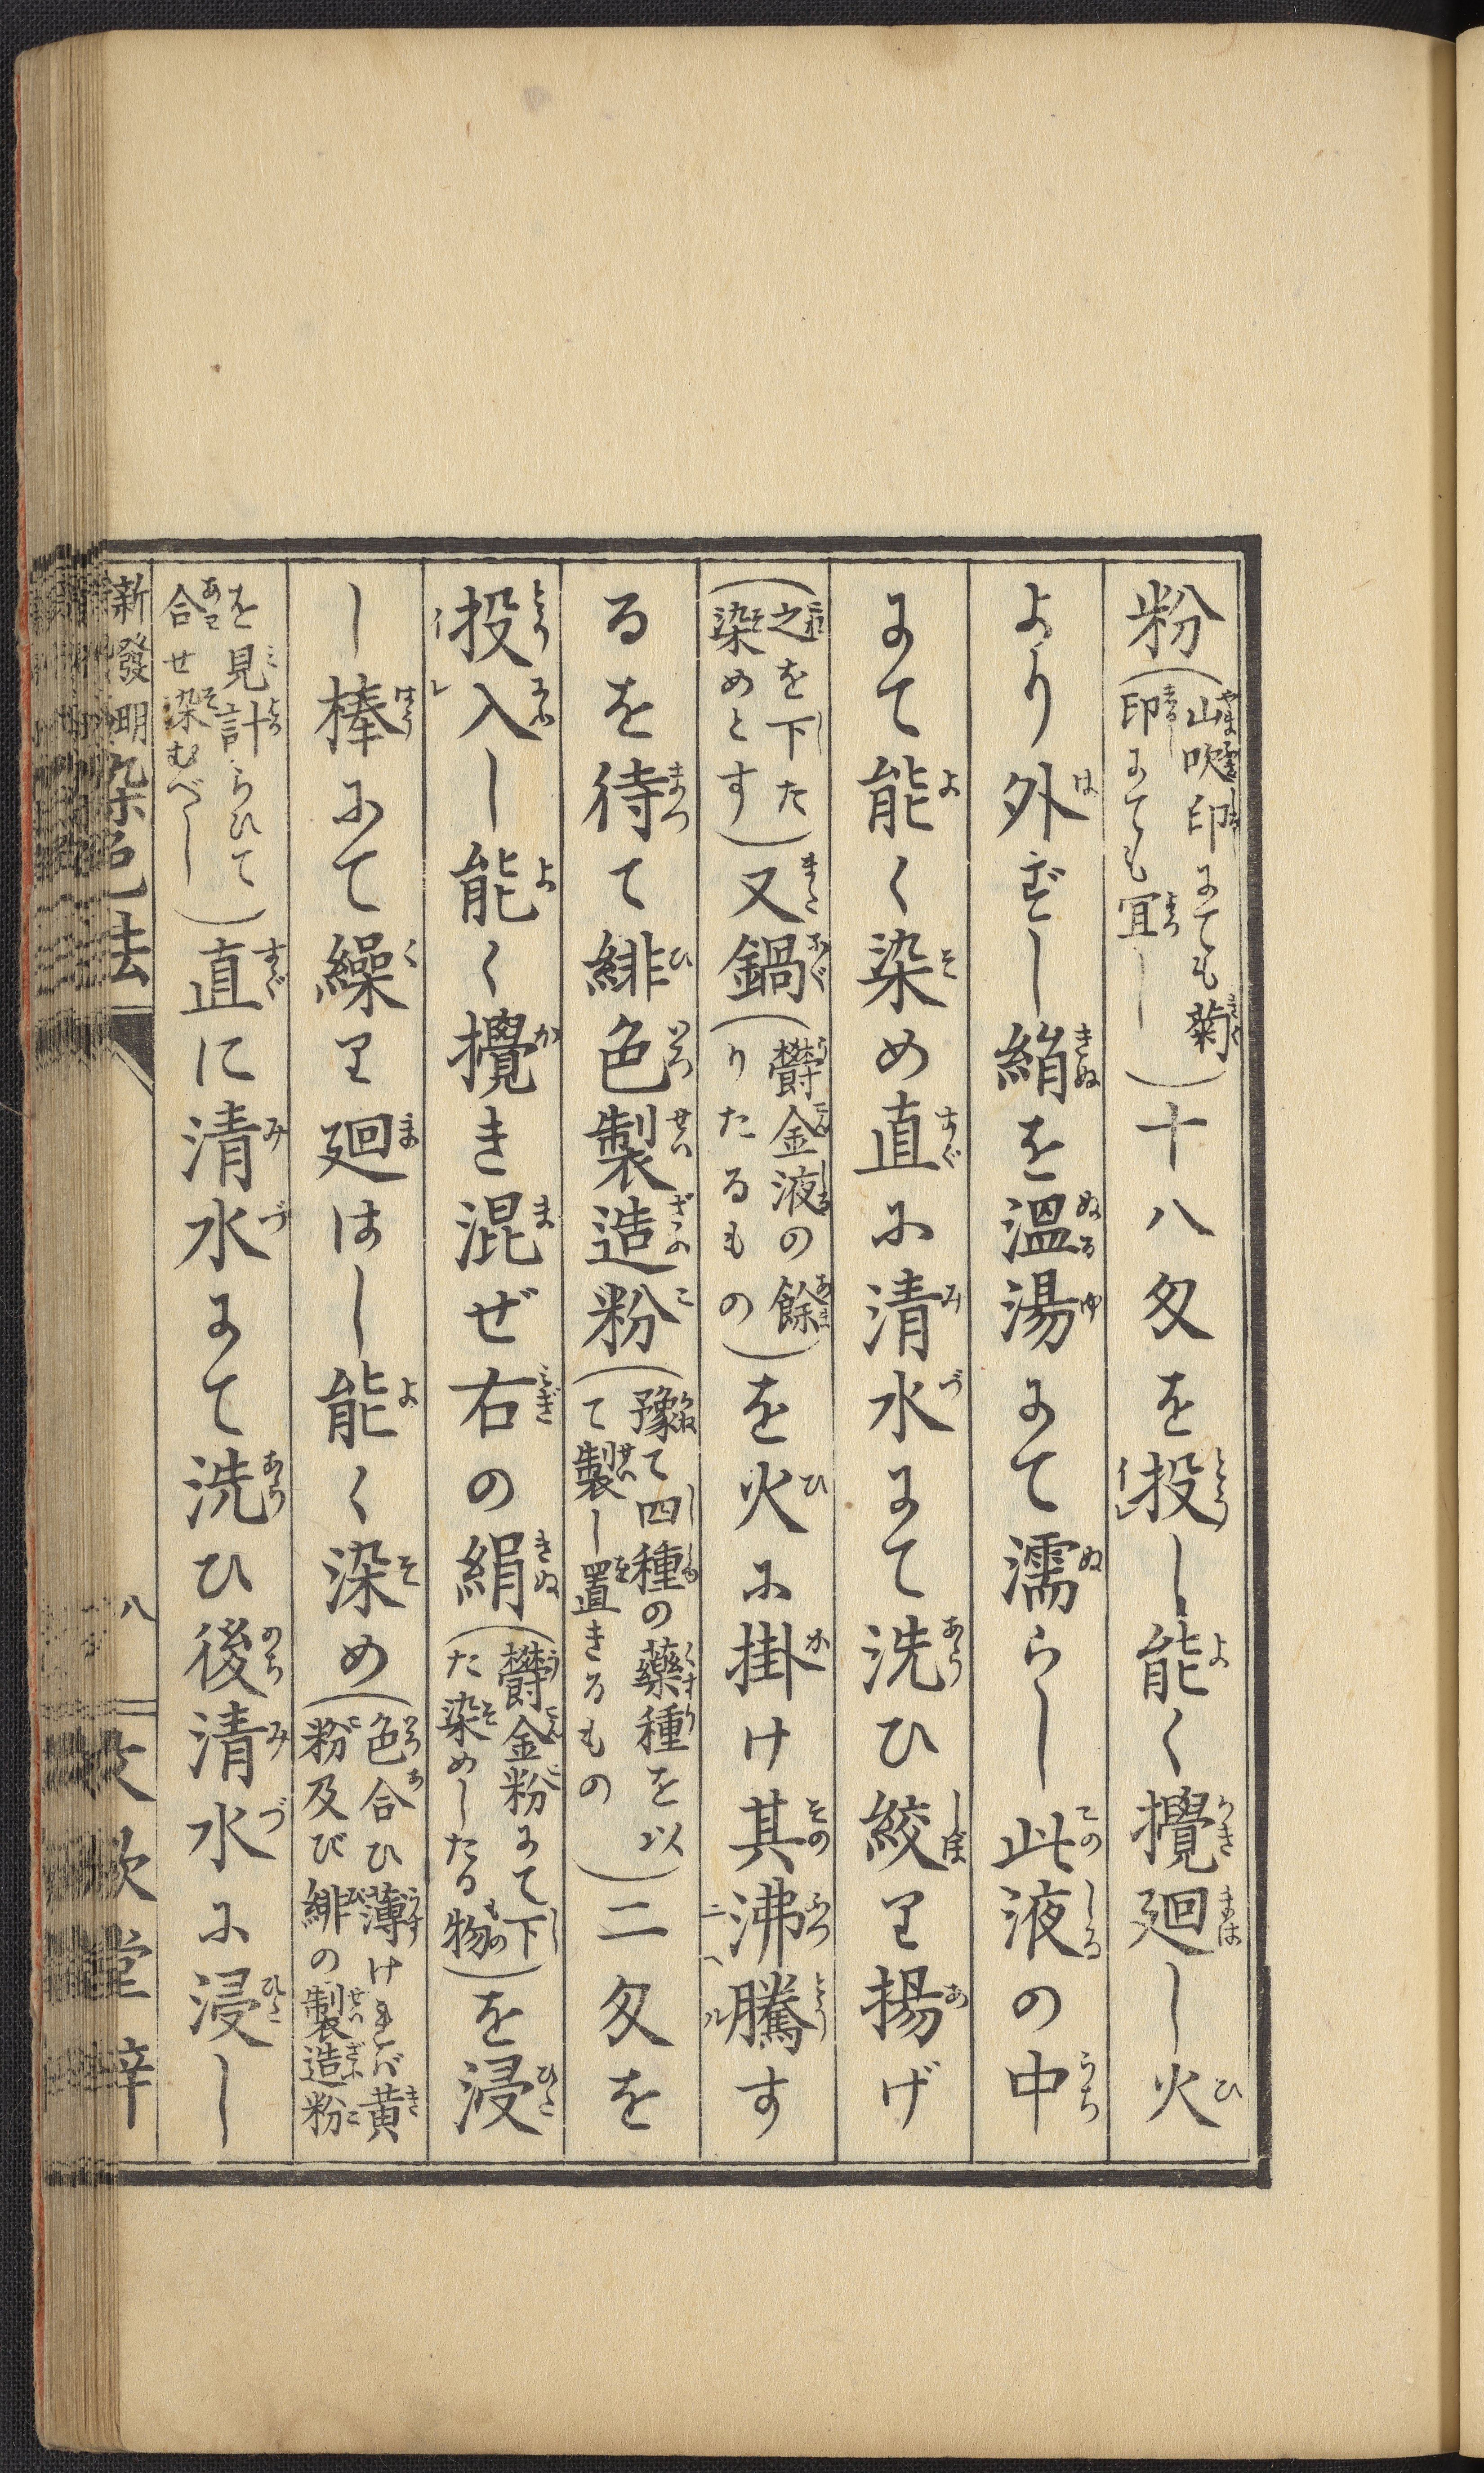 粉(山吹印にても菊印にても宜し)十八匁を投し能く攪廻し火
より外ずし絹を溫湯にて濡らし此液の中
にて能く染め直に清水にて洗ひ絞り揚げ
(之を下た染めとす)又鍋(欝金液の餘りたるもの)を火に掛け其沸騰す
るを待て緋色製造粉(豫て四種の藥種を以て製し置きるもの)二匁を
投入し能く攪き混ぜ右の絹(欝金粉にて下た染めしたる物)を浸
し棒にて繰り廻はし能く染め(色合ひ薄ければ黄粉及び緋の製造粉
を見計らひて合せ染むべし)直に清水にて洗ひ後清水に浸し
新發明染色法
八